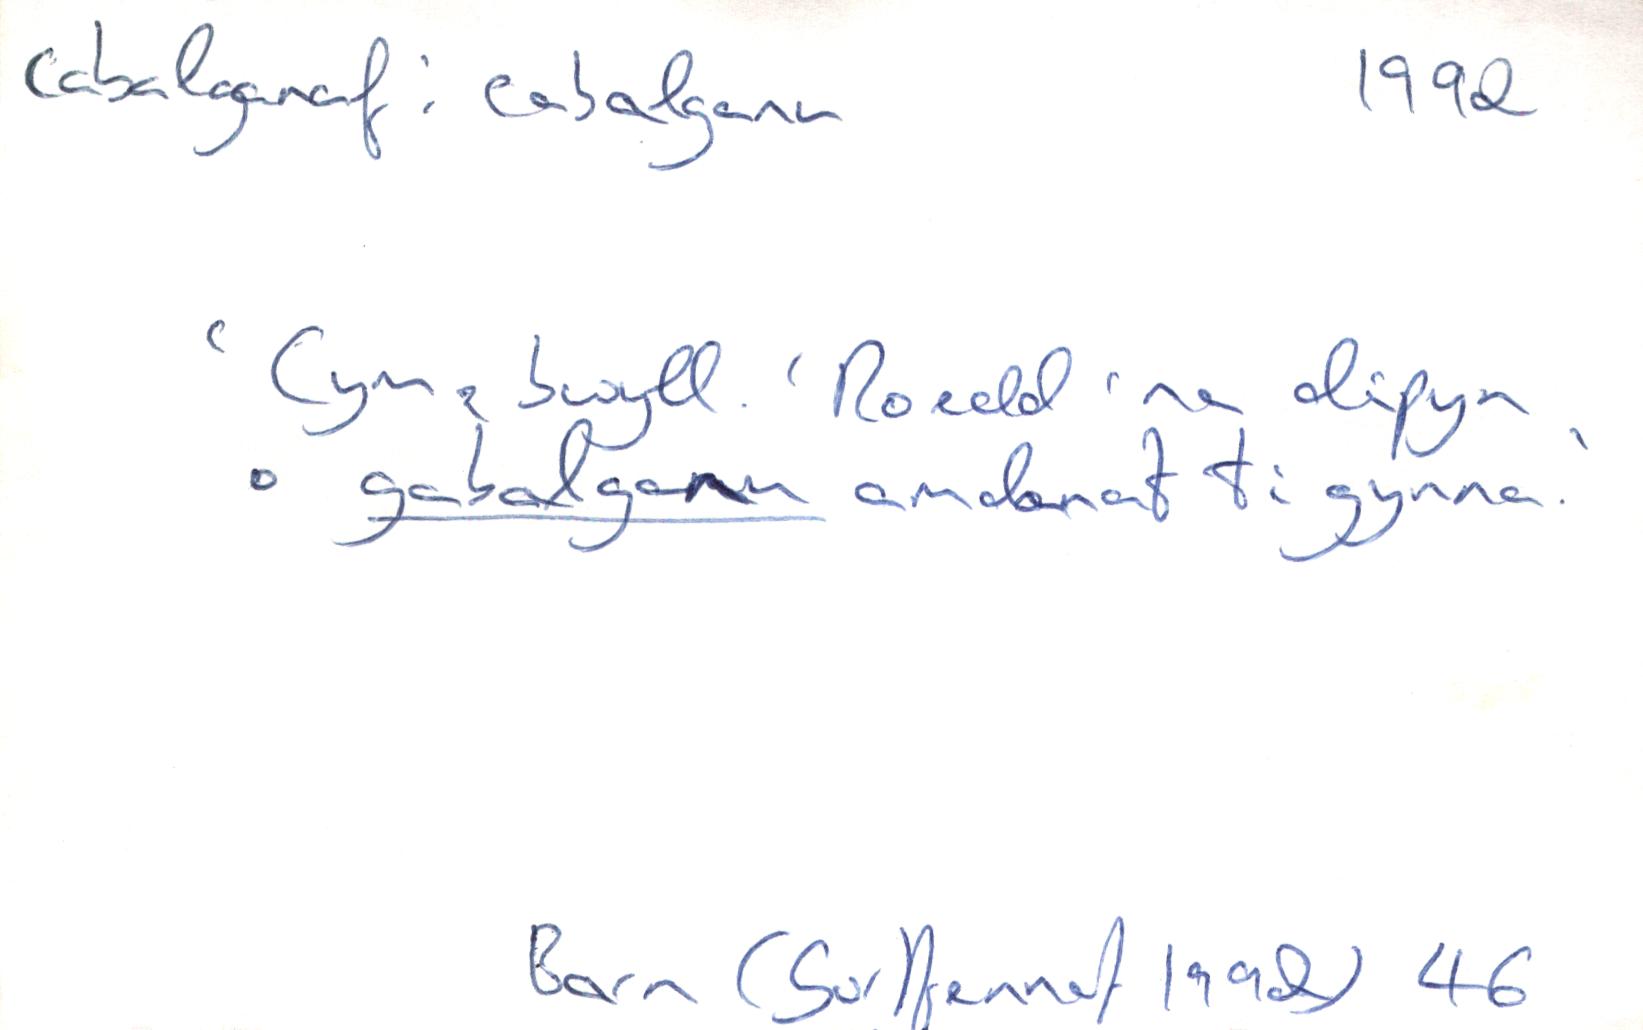 cabalganaf : cabalganu 1992
‘Cym. bwyll. ‘Roedd ‘na dipyn
o gabalganu amdanat ti gynna.’
Barn (Gorffennaf 1992) 46